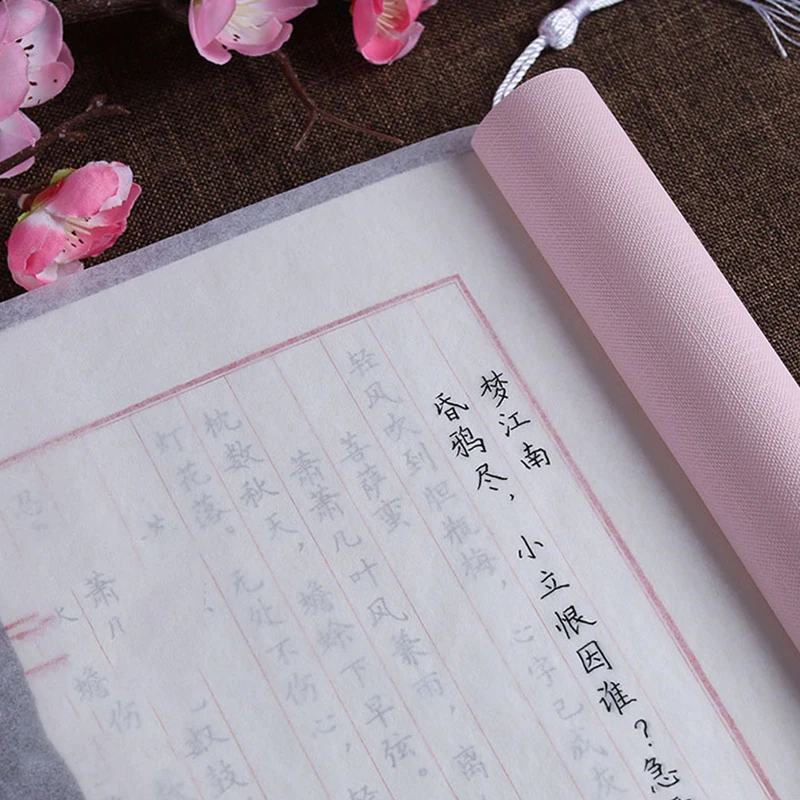 梦江南
昏鸦尽，小立恨因谁？急
轻风吹到胆瓶梅，心字已成灰
菩萨蛮
萧萧几叶风兼雨，离
枕数秋天，蟾蜍下早弦。
灯花落。无处不伤心，轻